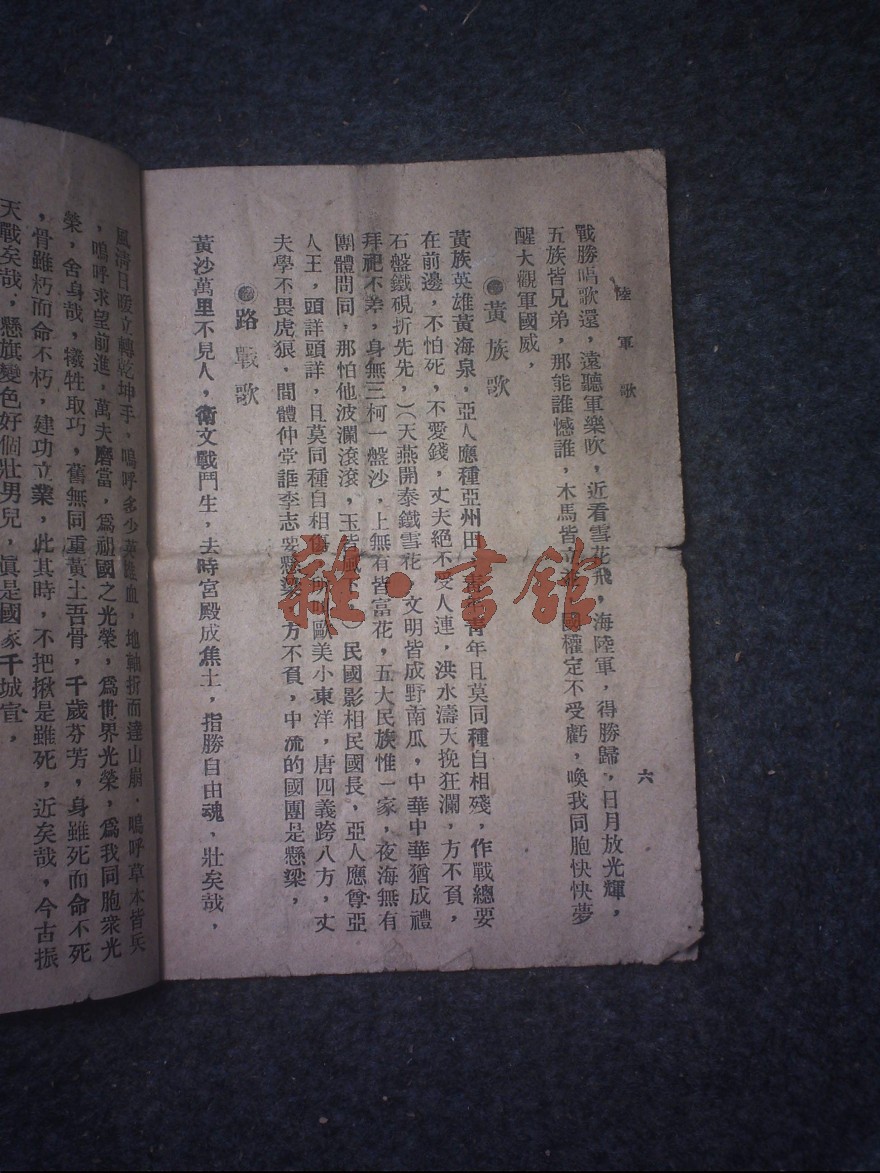 陸軍歌
六
戰勝唱歌還，遠聽軍樂吹，近看雪花飛，海陸軍，得勝歸，日月放光輝，
五族皆兄弟，那能誰憾誰，木馬皆立 國權定不受虧，喚我同胞快快夢
醒大觀軍國威，
黃族歌
黃族英雄黃海泉，亞人應種亞州田 青年且莫同種自相殘，作戰總要
在前邊，不怕死，不愛錢，丈夫絕不受人連，洪水濤天挽狂瀾，方不負，
石盤鐵硯折先先，）（天燕開泰鐵雪花 文明皆成野南瓜，中華中華猶成禮
拜祀不差，身無三柯一盤沙，上無有皆富花，五大民族惟一家，夜海無有
團體問同，那怕他波瀾滾滾，玉皆風 民國影相民國長，亞人應尊亞
人王，頭詳頭詳，且莫同種自相傷 歐美小東洋，唐四義跨八方，丈
夫學不畏虎狼，間體仲堂誰李志 懸梁 方不負，中流的國團是懸梁，
路戰歌
黃沙萬里不見人，衛文戰鬥生，去時宮殿成焦土，指勝自由魂，壯矣哉，
風清日暖立轉乾坤手，嗚呼多少英雄血，地軸折而達山崩，嗚呼草木皆兵
，嗚呼求望前進，萬夫磨當，為祖國之光榮，為世界光榮，為我同胞衆光
榮，舍身哉，犧牲取巧，舊無同重黃土吾骨，千歲芬芳，身雖死而命不死
，骨雖朽而命不朽，建功立業，此其時，不把揪是雖死，近矣哉，今古振
天戰矣哉，懸旗變色好個壯男兒，眞是國家千城宣，
雜·書館